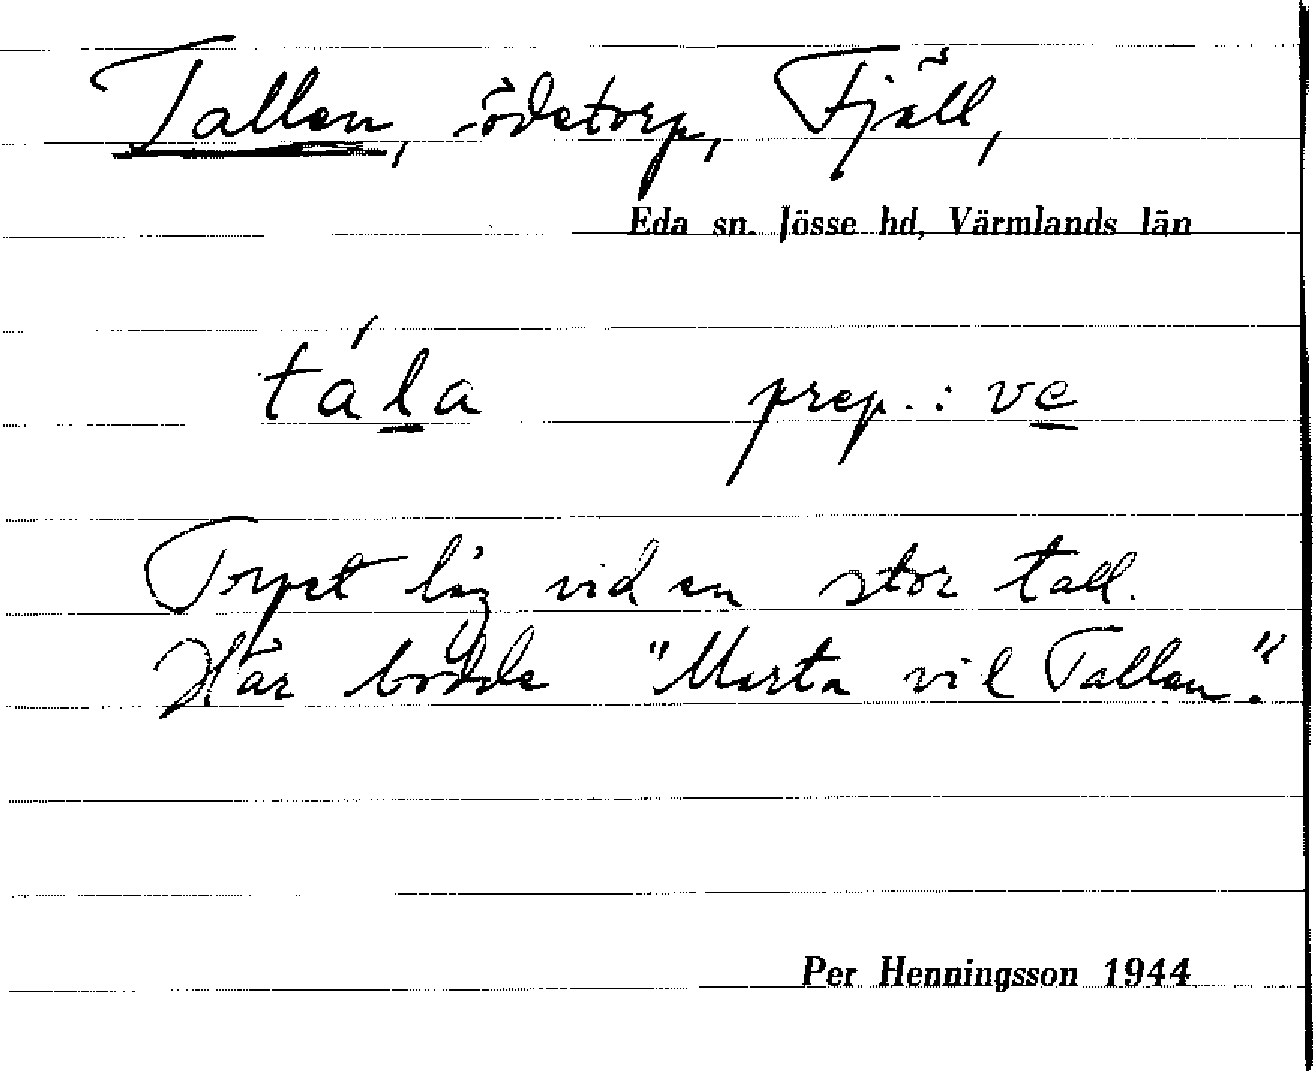 Tallen, ödetorp, Fjäll,
Eda sn. Jösse hd, Värmlands län
tála prep.: ve
Torpet låg vid en stor tall.
Här bodde "Marta vil Tallen".
Per Henningsson 1944